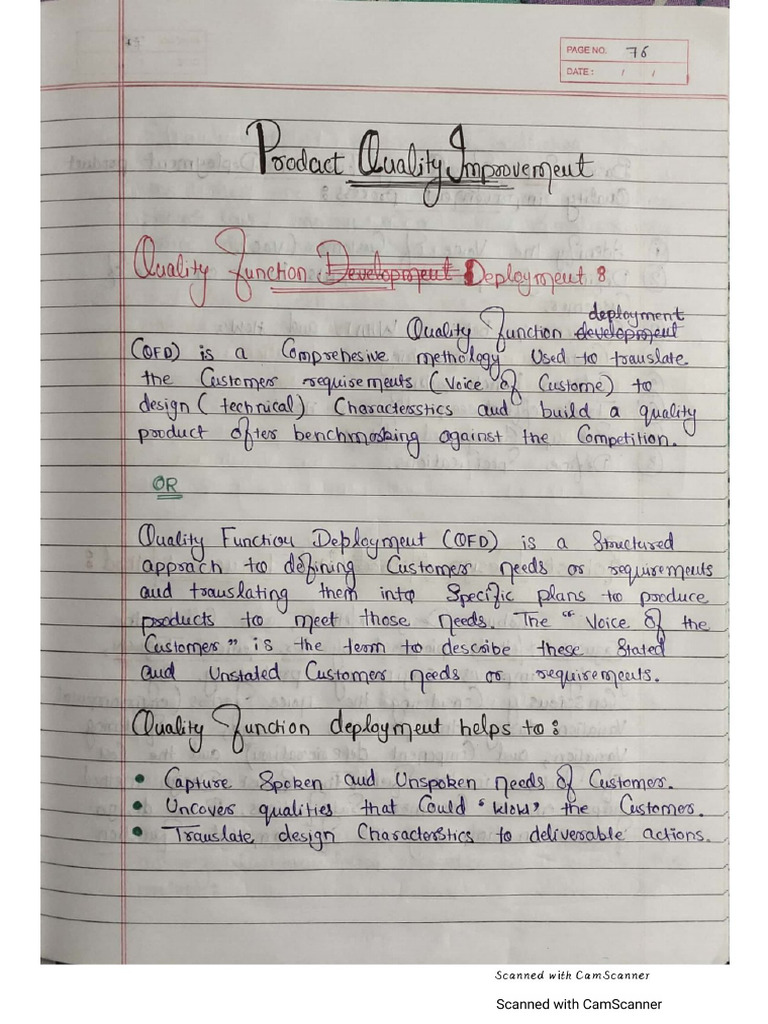 PAGE NO. 76
DATE: / /
Prodact Quality Improvement
Quality Function Development Deployment :
deployment
Quality Function development
(QFD) is a Comprehesive methology Used to translate
the Customer requirements (Voice of Custome) to
design (technical) Characterstics and build a quality
product after benchmarking against the Competition.
OR
Quality Function Deployment (QFD) is a Structured
apprach to defining Customer needs or requirements
and translating them into Specific plans to produce
products to meet those needs. The "Voice of the
Customer" is the term to describe these Stated
and Unstated Customer needs or requirements.
Quality Function deployment helps to:
• Capture Spoken and Unspoken needs of Customer.
• Uncover qualities that Could the Customer.
• Translate design Characterstics to deliverable actions.
Scanned with CamScanner
Scanned with CamScanner